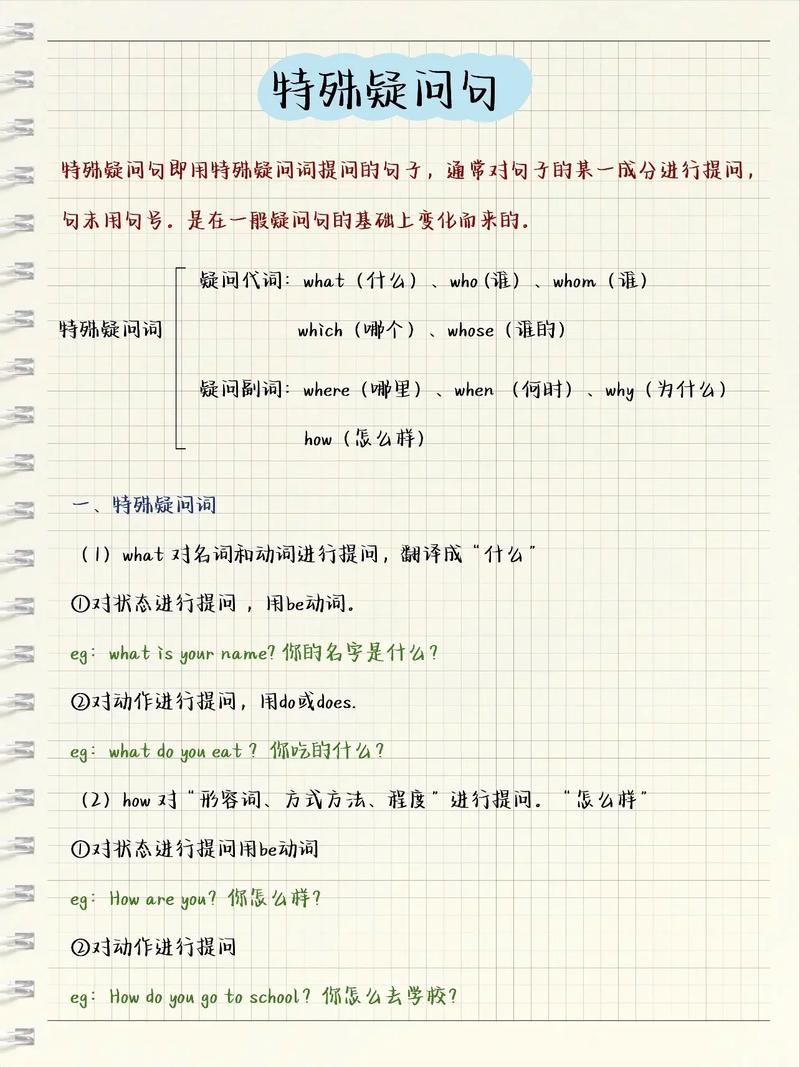 特殊疑问句
特殊疑问句即用特殊疑问词提问的句子，通常对句子的某一成分进行提问，
句末用句号。是在一般疑问句的基础上变化而来的。
疑问代词：what（什么）、who(谁）、whom（谁）
特殊疑问词
which（哪个）、whose（谁的）
疑问副词：where（哪里）、when （何时）、why（为什么）
how（怎么样）
一、特殊疑问词
（1）what 对名词和动词进行提问，翻译成“什么”
①对状态进行提问 ，用be动词。
eg：what is your name? 你的名字是什么？
②对动作进行提问，用do或does.
eg：what do you eat ？ 你吃的什么？
（2）how 对“形容词、方式方法、程度”进行提问。“怎么样”
①对状态进行提问用be动词
eg：How are you？你怎么样？
②对动作进行提问
eg：How do you go to school？你怎么去学校？